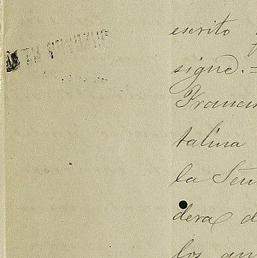 escrito
signe. =
Francis
talina
la Señ
dera d
los an